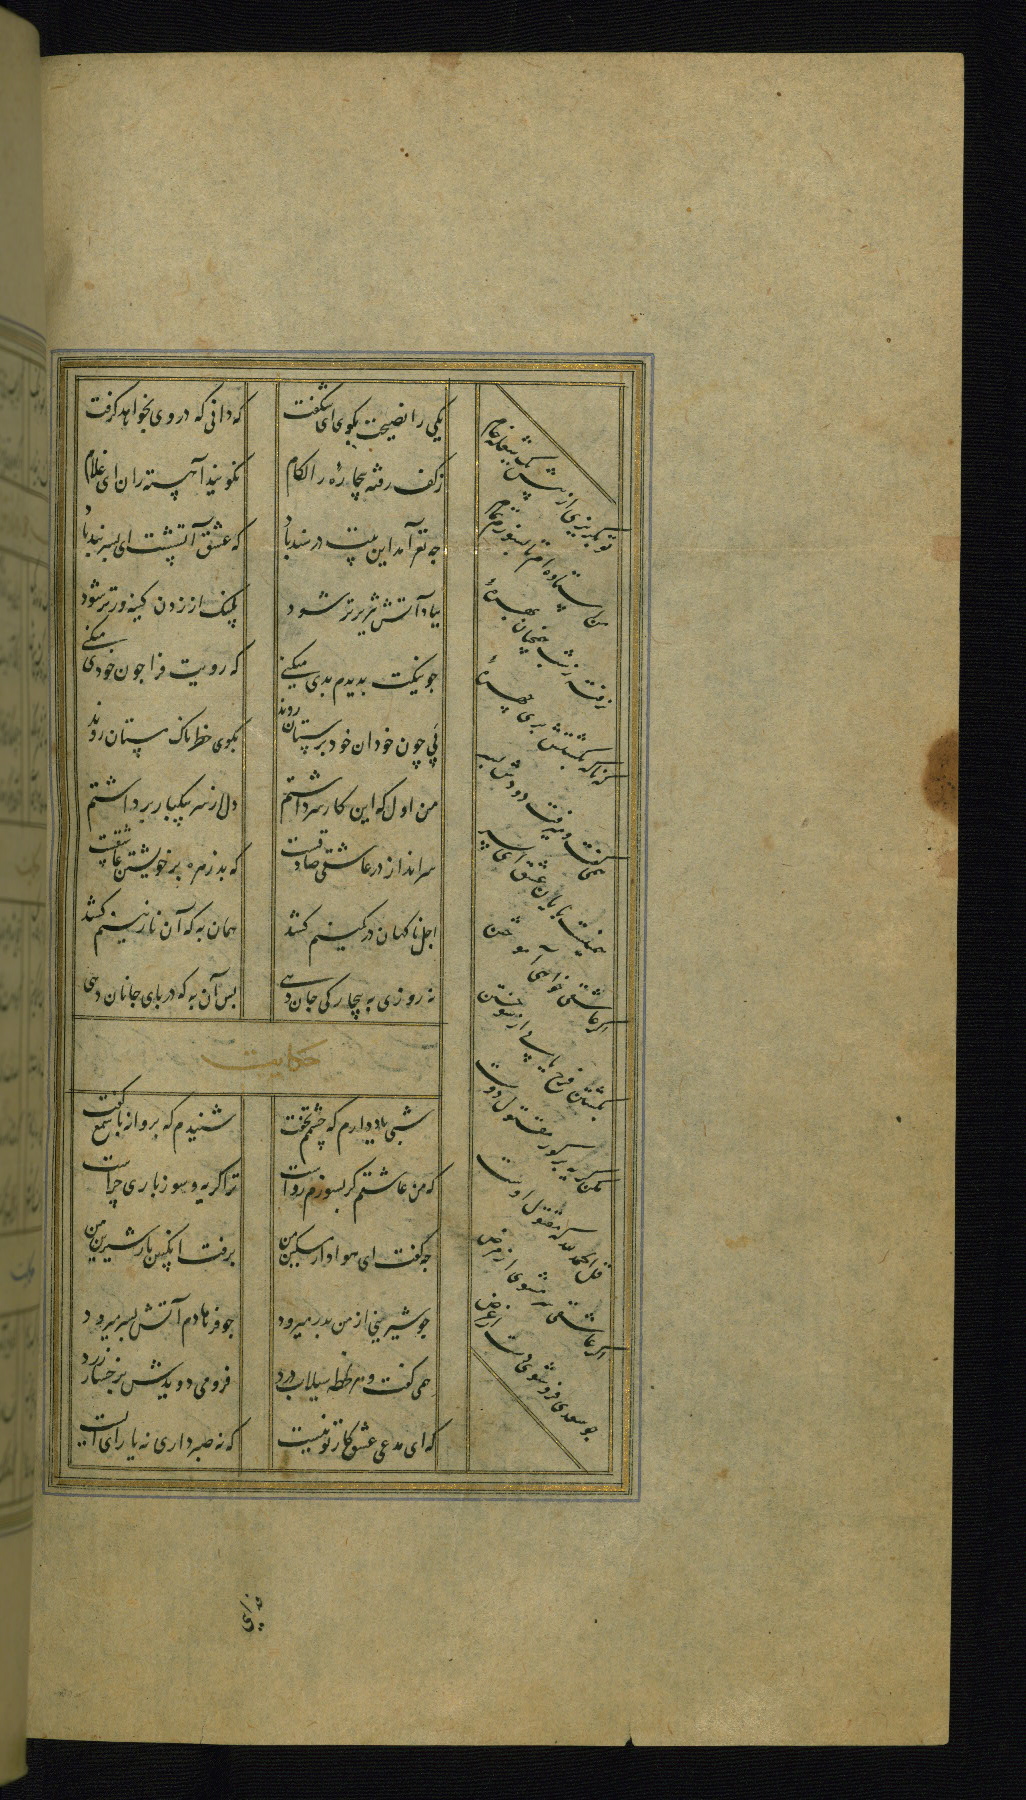 یکی را نصیحت بگوی ای شگفت که دانی که در وی بخواهد گرفت
زکف رفته بیچارهٔ را لگام نگویند آهسته ران ای غلام
چه نغز آمد این بیت در سندباد که عشق آتشست ای پسر پند باد
بباد آتش تیزبرتر شود پلنگ از زدن کینه ورتر شود
چو نیکت بدیدم بدی میکنی که رویت فرا چون خودی میکنی
پی چون خودان خودپرستان روند بکوی خطرناک مستان روند
من اول که این کار سر داشتم دل از سر بیکبار برداشتم
سر انداز در عاشقی صادقست که بدزهره بر خویشتن عاشقست
اجل ناگهان در کمینم کشد همان به که آن نازنینم کشد
نه روزی به بیچارگی جان دهی بس آن به که در پای جانان دهی
حکایت
شبی یاد دارم که چشمم نخفت شنیدم که پروانه با شمع گفت
که من عاشقم گر بسوزم رواست ترا گریه و سوز باری چراست
بگفت ای هوادار مسکین من برفت انگبین یار شیرین من
چو شیرینی از من بدر میرود چو فرهادم آتش بسر میرود
همی گفت و هر لحظه سیلاب درد فرو می دویدش برخسار زرد
که ای مدعی عشق کار تو نیست که نه صبر داری نه یارای ایست
تو بگریزی از پیش یک شعله خام
من استاده ام تا بسوزم تمام
نرفته ز شب همچنان بهرهٔ
که ناگه بکشتش پری چهرهٔ
همی گفت و میرفت دودش بسر
همینست پایان عشق ای پسر
اگر عاشقی خواهی آموختن
بکشتن فرج یابی از سوختن
مکن گریه بر گور مقتول دوست
قل الحمدلله که مقبول اوست
اگر عاشقی سر مشوی از مرض
چو سعدی فرو شوی دست از غرض